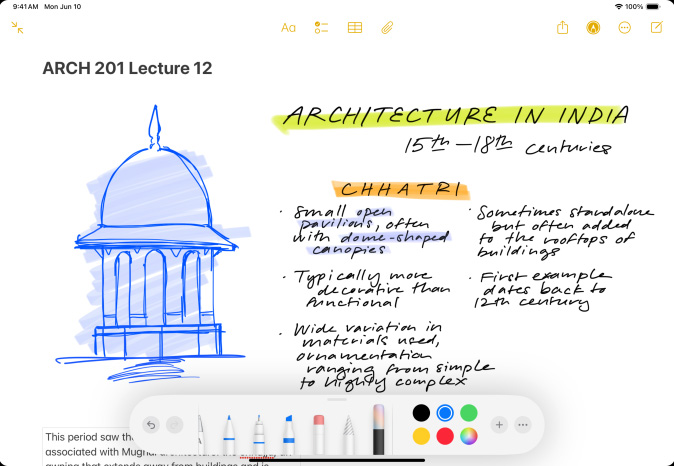 9:41AM Mon Jun 10
100%
Aa
ARCH 201 Lecture 12
ARCHITECTURE IN INDIA
15th – 18th centuries
CHHATRI
· Small open
pavilions, often
with dome-shaped
canopies
· Typically more
decorative than
functional
· Wide variation in
materials used,
ornamentation
ranging from simple
to highly complex
· Sometimes standalone
but often added
to the rooftops of
buildings
· First example
dates back to
12th century
This period saw
associated with
awning that extends away from buildings and is